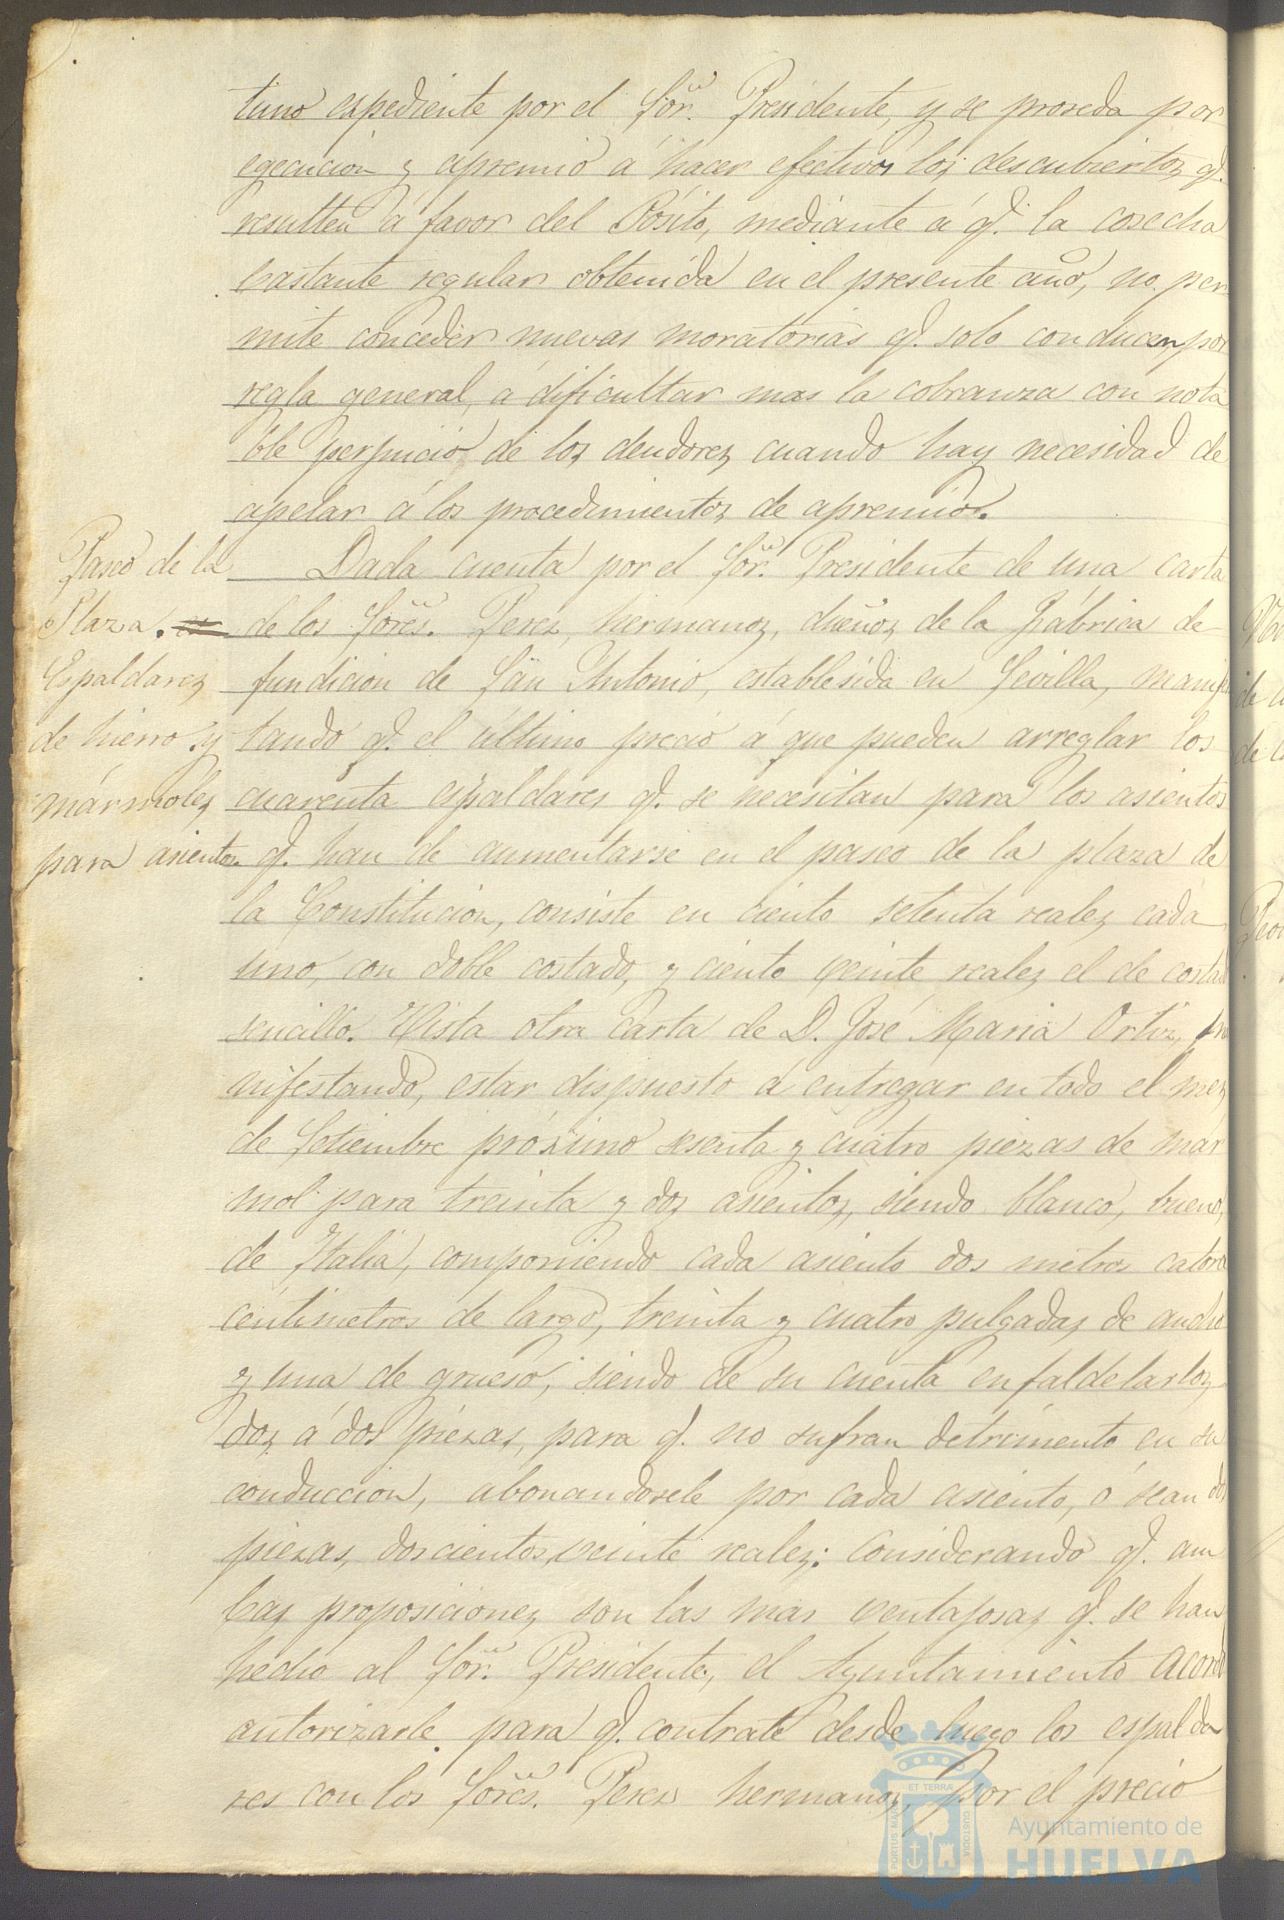 tuno espediente por el Sor. Presidente, y se proseda por
egecucion y apremio á hacer efectivos los descubiertos q.
resulten á favor del Pósito, mediante á q. la cosecha
bastante regular obtenida en el presente año, no per
mite conceder nuevas moratorias q. solo conducen por
regla general, á dificultar mas la cobranza con nota
ble perjuicio de los deudores cuando hay necesidad de
apelar á los procedimientos de apremio.
Paseo de la
Plaza.
Espaldares
de hierro y
mármoles
para asientos
Dada cuenta por el Sor. Presidente de una carta
de los Sores. Perez, hermanos, dueños de la Fábrica de
fundicion de San Antonio, establesida en Sevilla, manifes
tando q. el último precio á que pueden arreglar los
cuarenta espaldares q. se necesitan para los asientos
q. han de aumentarse en el paseo de la plaza de
la Constitucion, consiste en ciento setenta reales cada
uno, con doble costado, y ciento veinte reales el de costado
sencillo. Vista otra carta de D. José Maria Ortiz, ma
nifestando, estar dispuesto á entregar en todo el mes
de Setiembre próximo sesenta y cuatro piezas de mar
mol para treinta y dos asientos, siendo blanco, bueno,
de Italia, componiendo cada asiento dos metros catorce
centimetros de largo, treinta y cuatro pulgadas de ancho
y una de grueso, siendo de su cuenta enfaldelarlos
dos á dos piezas, para q. no sufran detrimento en su
conduccion, abonandosele por cada asiento, ó sean dos
piezas, doscientos veinte reales: Considerando q. am
bas proposiciones son las mas ventajosas q. se han
hecho al Sor. Presidente, el Ayuntamiento acordó
autorizarle para q. contrate desde luego los espalda
res con los Sores. Perez hermanos, por el precio
PORTUS MARIS
ET TERRÆ
CUSTODIA
Ayuntamiento de
HUELVA